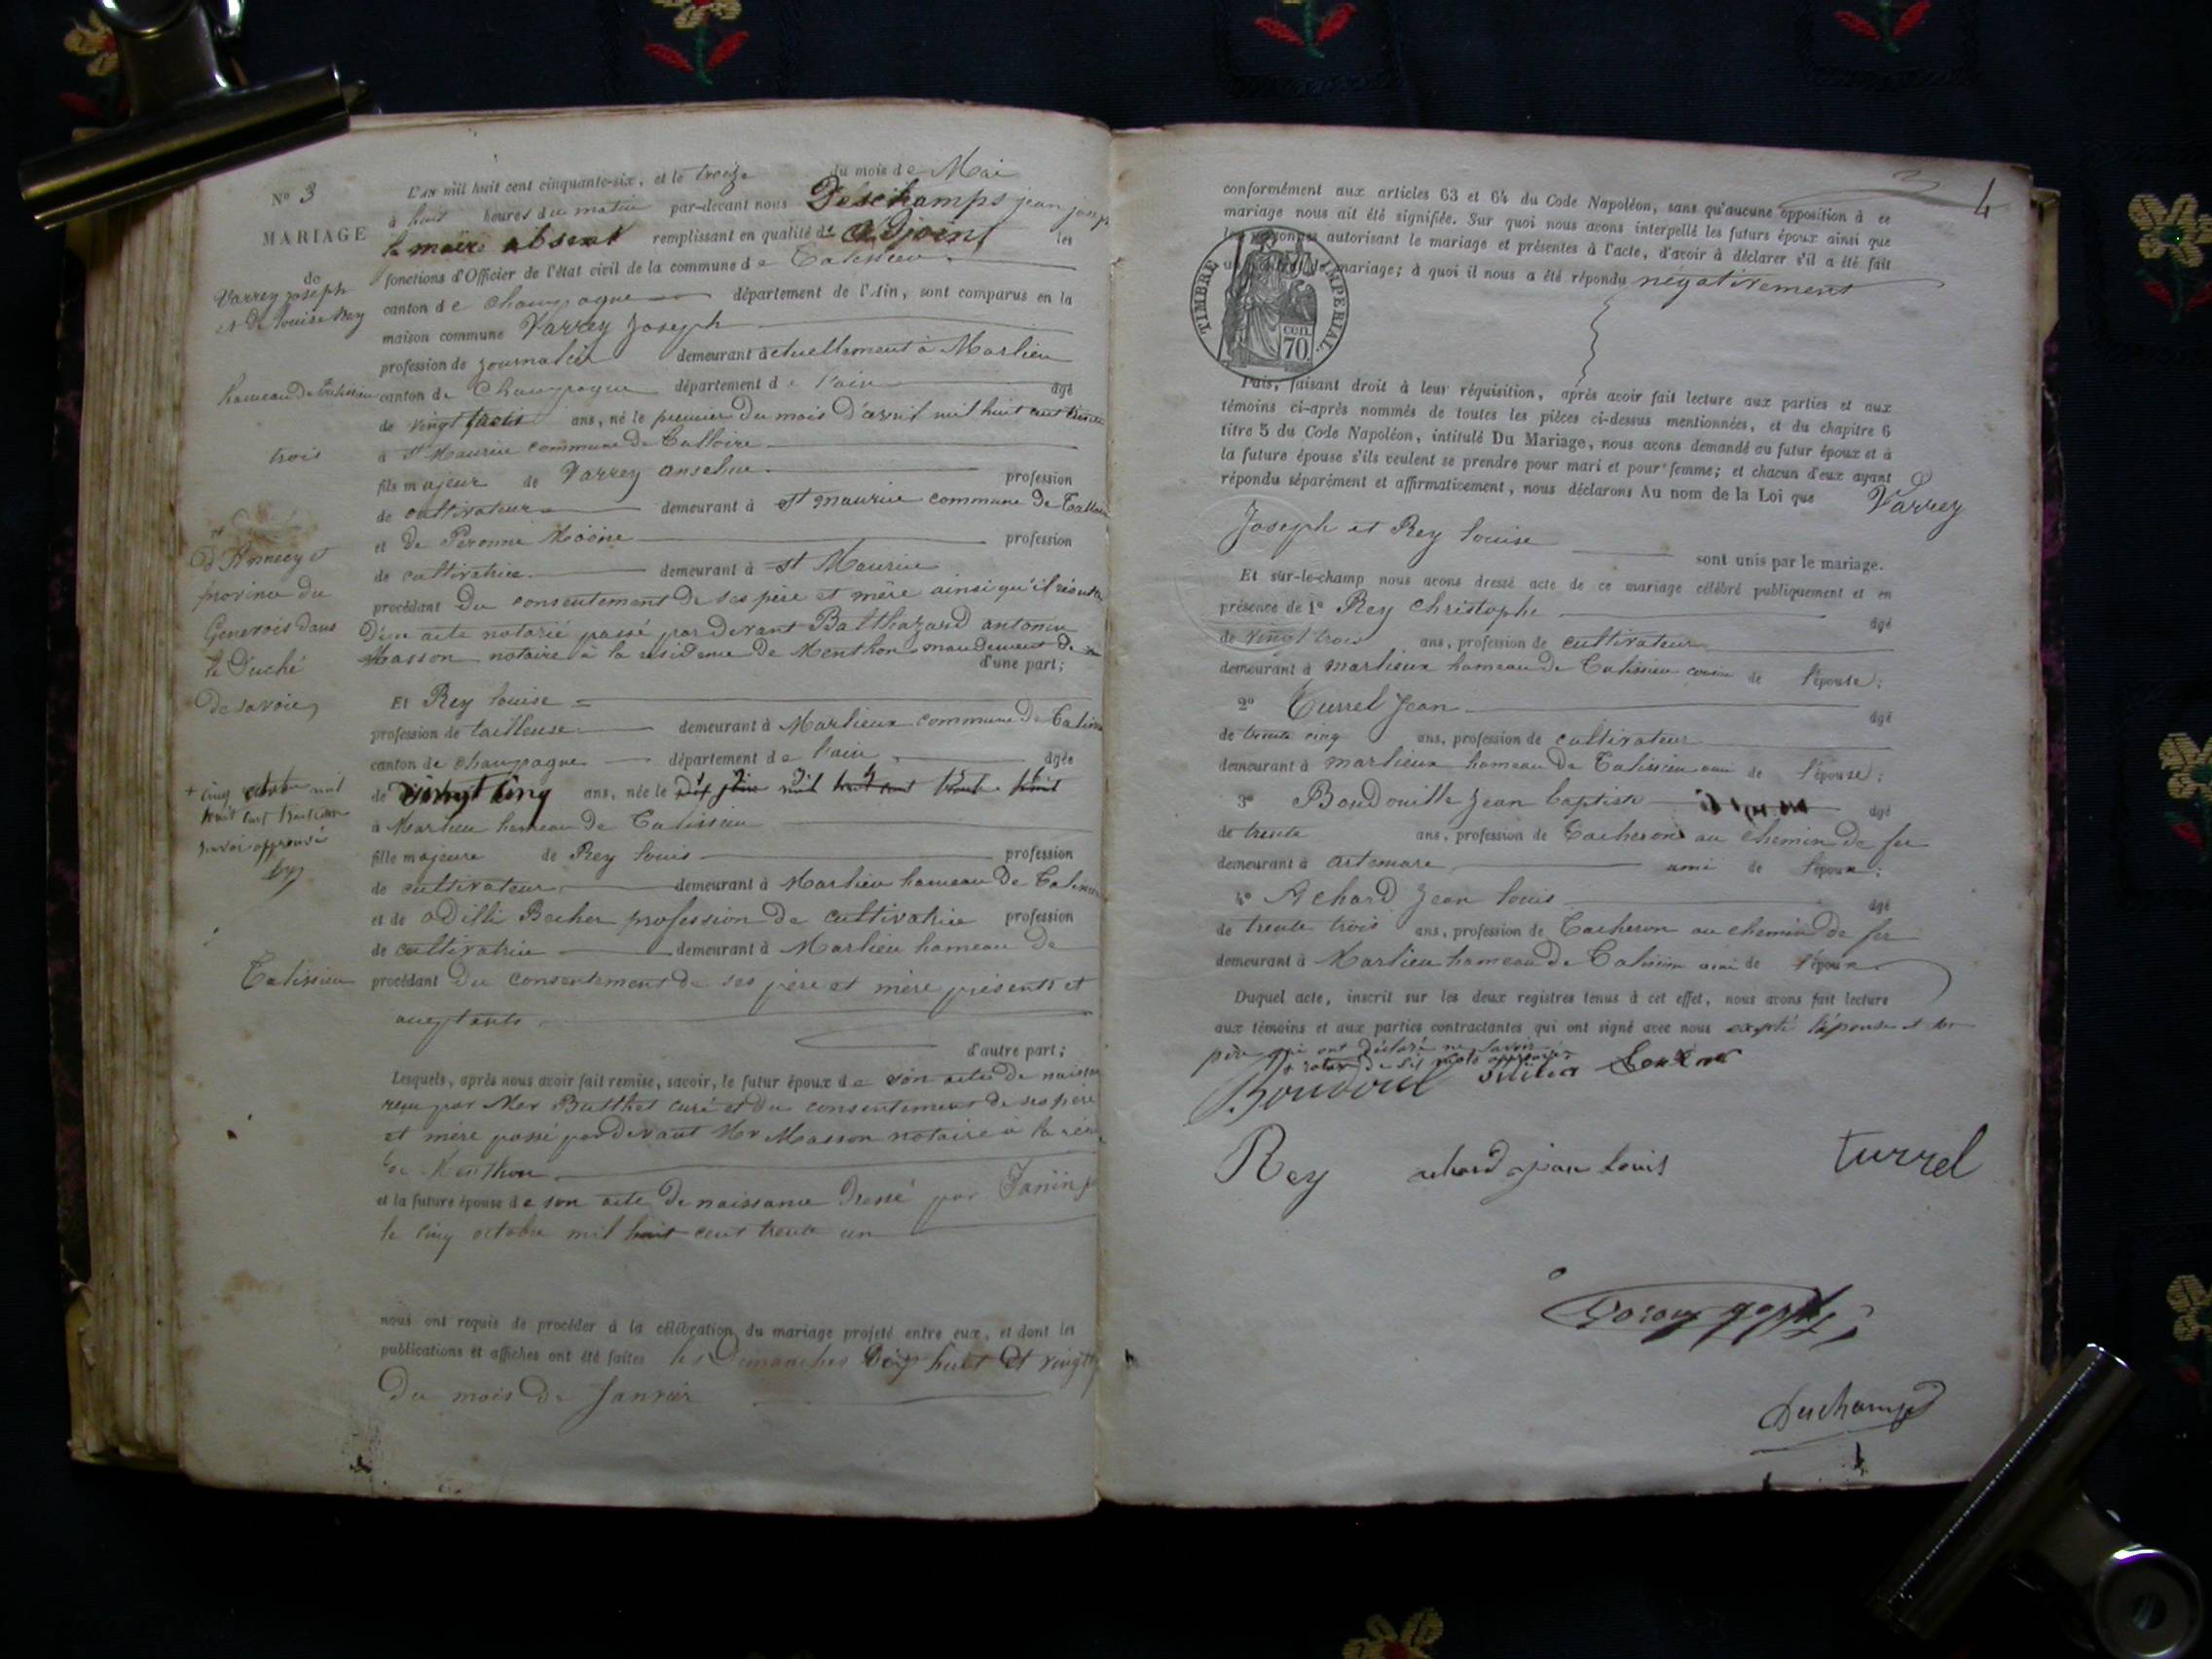 Nº 3
MARIAGE
de
Varrey joseph
et de louise Rey
hameau de Talissieu
trois
d'Annecy et
province du
Genevois dans
le Duché
de savoie
+ cinq octobre mil
huit cent trente un
renvoi approuvé
Talissieu
L'AN mil huit cent cinquante-six, et le treize du mois de Mai
à huit heures du matin par-devant nous Deschamps jean joseph
le maire absent remplissant en qualité de adjoint les
fonctions d'Officier de l'état civil de la commune de Talissieu
canton de Champagne département de l'Ain, sont comparus en la
maison commune Varrey Joseph
profession de journalier demeurant actuellement à Marlieu
canton de Champagne département de l'ain âgé
de vingt trois ans, né le premier du mois d'avril mil huit cent trente
à st Maurice commune de Talloire
fils majeur de Varrey anselme profession
de cultivateur demeurant à st maurice commune de Talloire
et de Peronne profession
de cultivatrice demeurant à st Maurice
procédant du consentement de ses père et mère ainsi qu'il résulte
d'un acte notarié passé par devant Balthazard antoine
Masson notaire à la résidence de Menthon mandement de
d'une part;
Et Rey louise
profession de tailleuse demeurant à Marlieux commune de Talissieu
canton de champagne département de l'ain âgée
de vingt cinq ans, née le dix juin mil huit cent trente huit
à Marlieu hameau de Talissieu
fille majeure de Rey louis profession
de cultivateur demeurant à Marlieu hameau de Talissieu
et de Odilli Becher profession de cultivatrice profession
de cultivatrice demeurant à Marlieu hameau de
procédant du consentement de ses père et mère présents et
acceptants
d'autre part;
Lesquels, après nous avoir fait remise, savoir, le futur époux de son acte de naissance
reçu par Mer Butthet curé et du consentement de ses père
et mère passé par devant Mer Masson notaire à la
de Menthon
et la future épouse de son acte de naissance dressé par Janin
le cinq octobre mil huit cent trente un
nous ont requis de procéder à la célébration du mariage projeté entre eux, et dont les
publications et affiches ont été faites les Dimanches dix huit et vingt
du mois de Janvier
4
conformément aux articles 63 et 64 du Code Napoléon, sans qu'aucune opposition à ce
mariage nous ait été signifiée. Sur quoi nous avons interpellé les futurs époux ainsi que
les personnes autorisant le mariage et présentes à l'acte, d'avoir à déclarer s'il a été fait
un contrat de mariage; à quoi il nous a été répondu négativement
TIMBRE IMPERIAL
cen.
70
Puis, faisant droit à leur réquisition, après avoir fait lecture aux parties et aux
témoins ci-après nommés de toutes les pièces ci-dessus mentionnées, et du chapitre 6
titre 5 du Code Napoléon, intitulé Du Mariage, nous avons demandé au futur époux et à
la future épouse s'ils veulent se prendre pour mari et pour femme; et chacun d'eux ayant
répondu séparément et affirmativement, nous déclarons Au nom de la Loi que Varrey
Joseph et Rey louise sont unis par le mariage.
Et sur-le-champ nous avons dressé acte de ce mariage célébré publiquement et en
présence de 1º Rey Christophe âgé
de vingt trois ans, profession de cultivateur
demeurant à marlieux hameau de Talissieu cousin de l'épouse;
2º Turrel Jean âgé
de trente cinq ans, profession de cultivateur
demeurant à marlieux hameau de Talissieu ami de l'épouse;
3º Boudouille Jean baptiste âgé
de trente ans, profession de Tacheron au chemin de fer
demeurant à artemare ami de l'époux;
4º Achard Jean louis âgé
de trente trois ans, profession de Tacheron au chemin de fer
demeurant à Marlieu hameau de Talissieu ami de l'époux
Duquel acte, inscrit sur les deux registres tenus à cet effet, nous avons fait lecture
aux témoins et aux parties contractantes qui ont signé avec nous excepté l'épouse et son
père qui ont déclaré ne savoir
Rey achard jean louis turrel
Deschamps